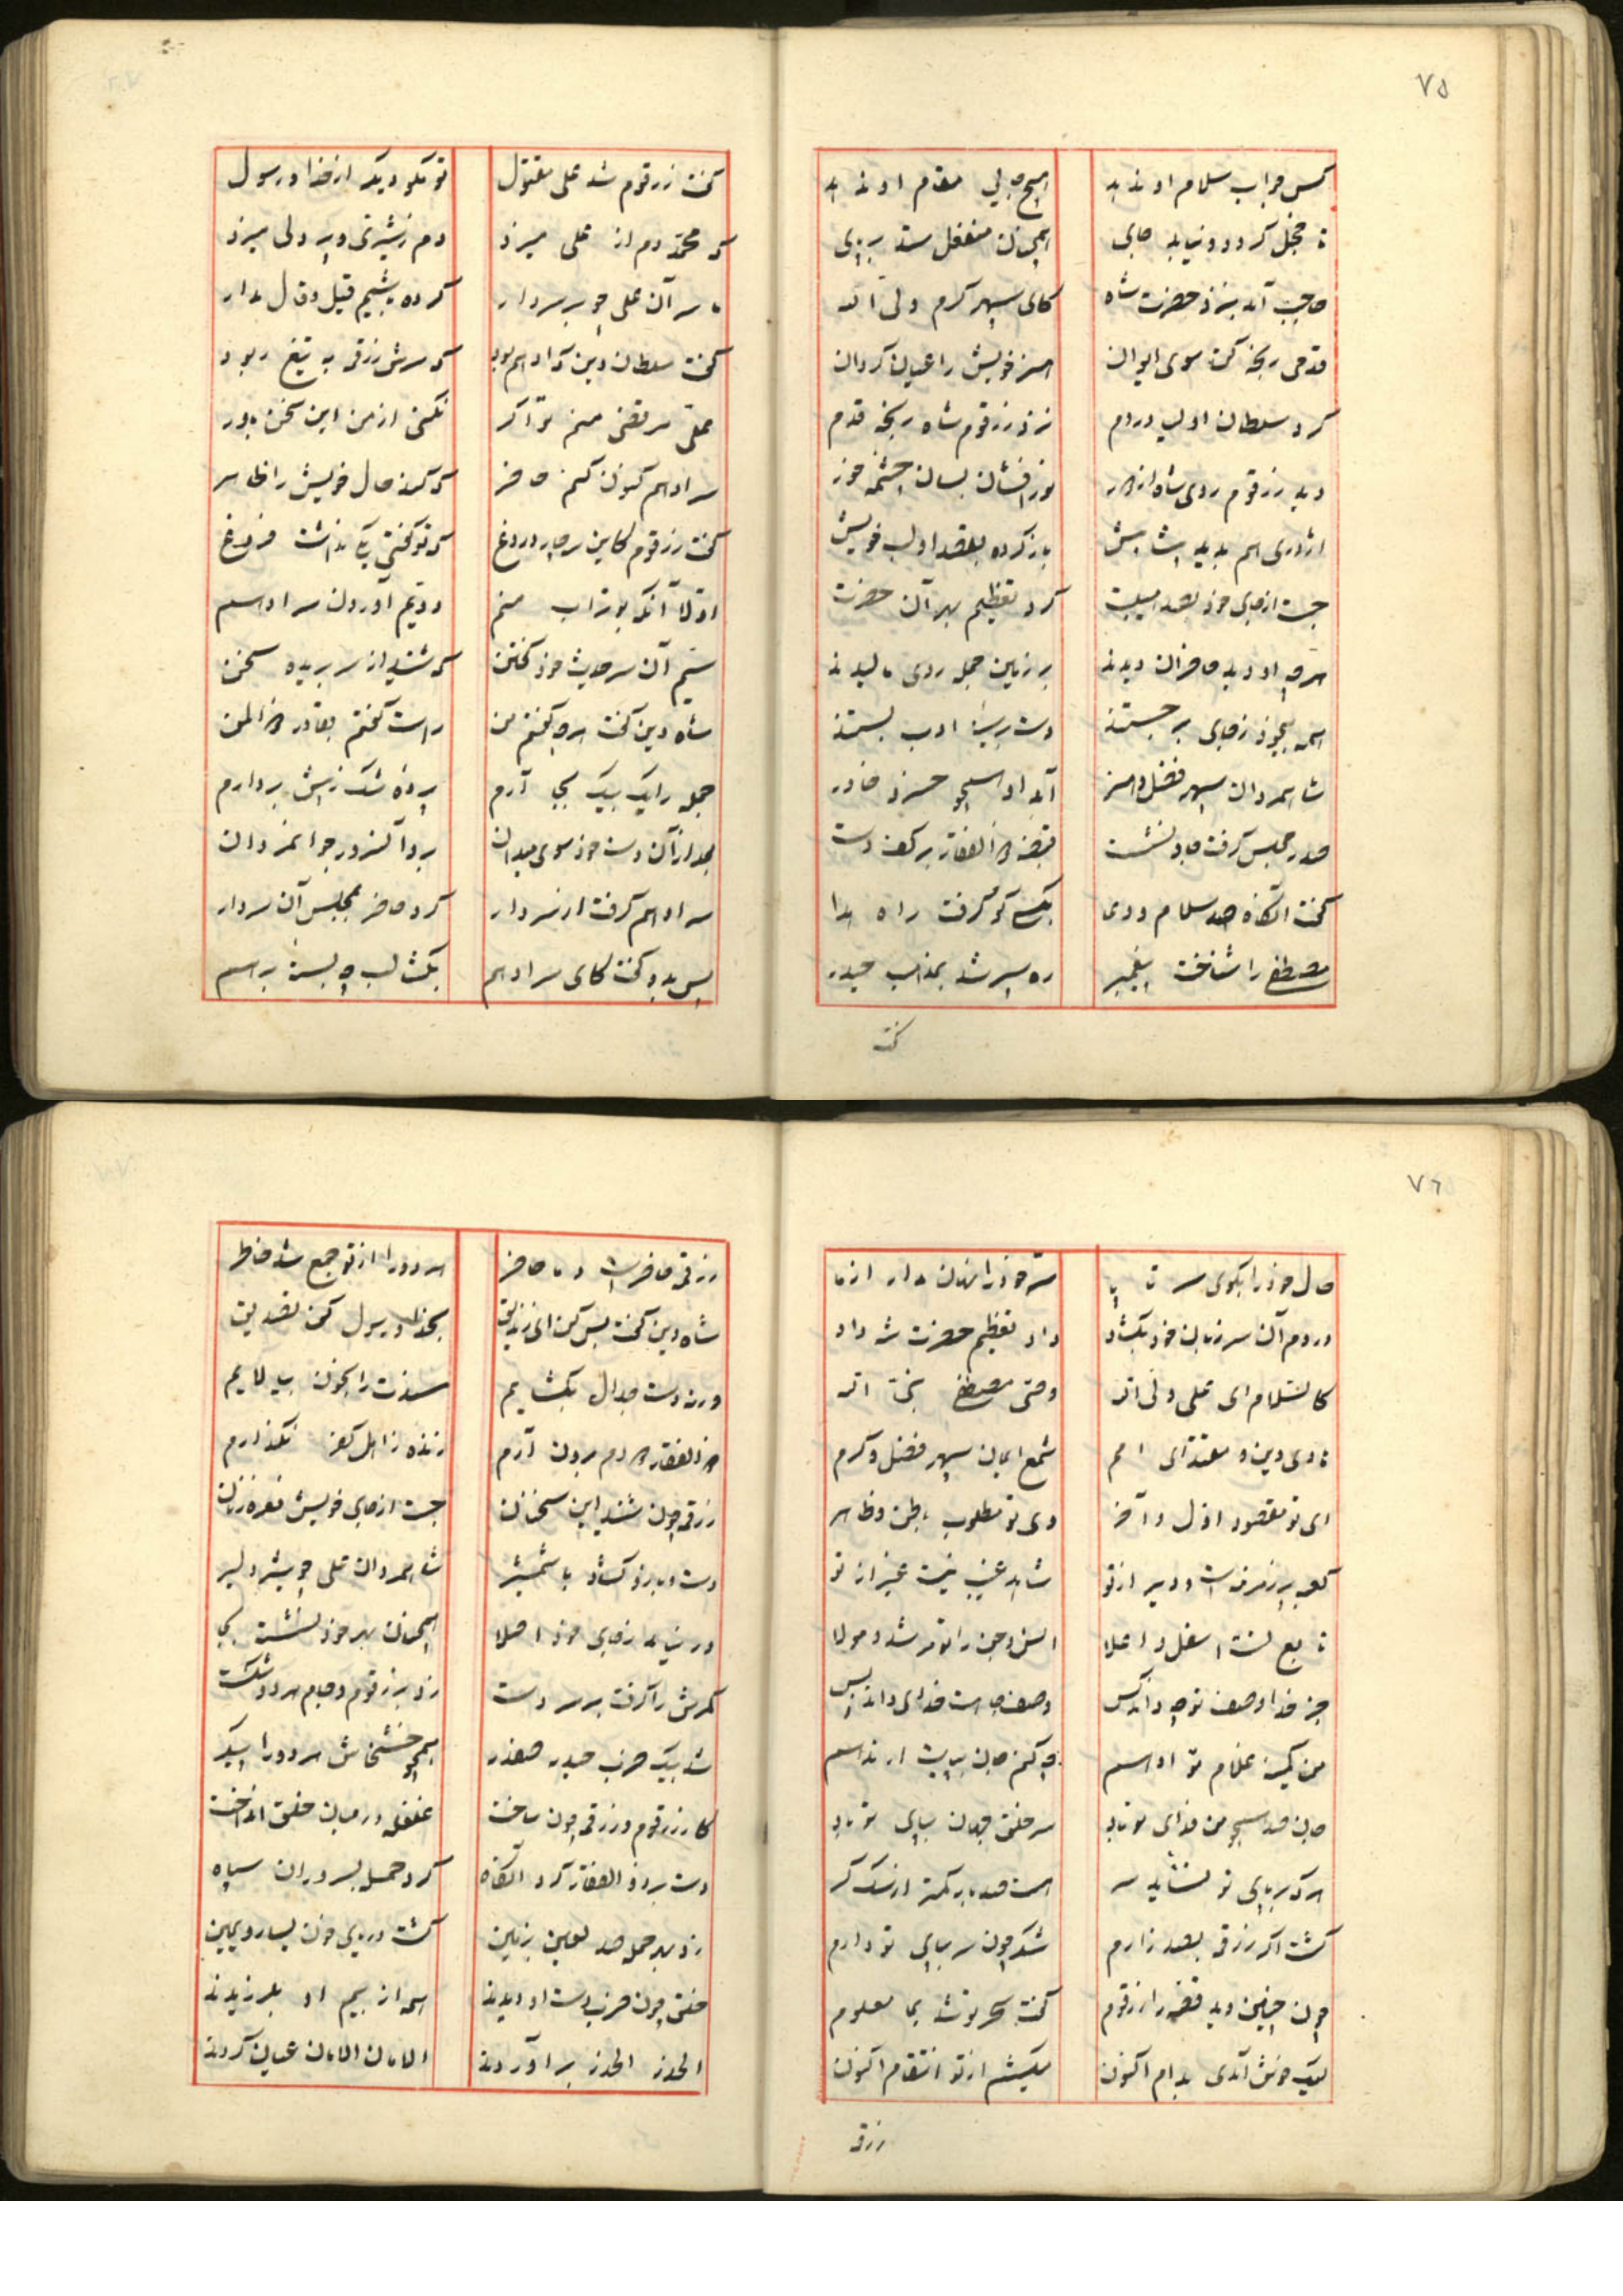 ۷۵
کس جواب سلام او ندهد هیچ جایی مقام او ندهد
تا خجل گردد و نیابد جای همچنان منفعل ستد بر پای
حاجب آمد بنزد حضرت شاه کای سپهر کرم ولی اله
قدمی رنجه کن سوی ایوان هنر خویش را عیان گردان
کرد سلطان اولیا در دم نزد زرقوم شاه رنجه قدم
دید زرقوم روی شاه از در نور افشان بسان چشمه خور
اژدری هم بدید باز کرده بقصد او لب خویش
جست از جای خود بصد هیبت کرد تعظیم بهر آن حضرت
هرچه او دید حاضران دیدند بر زمین جمله روی مالیدند
همه بیخود ز جای برجستند دست بر سینه ادب بستند
شاهمردان سپهر فضل و هنر آمد او همچو خسرو خاور
صدر مجلس گرفت جا و نشست قبضه ذوالفقار بر کف دست
گفت آنگاه صد سلام و دعا بکسی کو گرفت راه هدا
مصطفی را شناخت پیغمبر ره سپر شد بمذهب حیدر
گفت
گفت زرقوم شد علی مقتول تو مگو دیگر از خدا و رسول
که محمد دم از علی میزد دم ز شیری و پر دلی میزد
ما سر آن علی چو بر سر دار کرده باشیم قیل و قال مدار
گفت سلطان دین که ادهم بود که سرش زرقی به تیغ ربود
علی مرتضی منم تو اگر نکنی از من این سخن باور
سر ادهم کنون کنم حاضر که کند حال خویش را ظاهر
گفت زرقوم کاین سه چار دروغ که تو گفتی یکی نداشت فروغ
اولا آنکه بوتراب منم دویم آوردن سر ادهم
سیم آن سر حدیث خود گفتن که شنید از سر بریده سخن
شاه دین گفت هرچه گفتم من راست گفتم بقادر ذوالمن
جمله را یک بیک بجا آرم پرده شک ز پیش بردارم
بعد از آن دست خود سوی میدان برد آنسرور جوانمردان
سر ادهم گرفت از سر دار کرد حاضر بمجلس آن سردار
پس بدو گفت کای سر ادهم بگشا لب چه بسته بر هم
۷۶
حال خود را بگوی سر تا پا سر خود را نهان مدار از ما
در دم آن سر زبان خود بگشاد داد تعظیم حضرت شه داد
کالسلام ای علی ولی اله وصی مصطفی نبی اله
هادی دین و مقتدای امم شمع ایمان سپهر فضل و کرم
ای تو مقصود اول و آخر وی تو مطلوب باطن و ظاهر
کعبه پر زمزمه است و دیر از تو شاهد غیب نیست غیر از تو
تابع تست اسفل و اعلا انس و جن را تو مرشد و مولا
جز خدا وصف تو چه داند کس وصف جاهت خدای داند بس
من کمینه غلام تو ادهم چه کنم جان بپایت ار ندهم
جان صد همچو من فدای تو باد سر خلق جهان بپای تو باد
هر که بر پای تو نشاید سر هست صد بار کمتر از سگ گر
کشت اگر زرقی بصد زارم شکر چون سر بپای تو دارم
چون چنین دید قصه را زرقوم گفت سحر تو شد بما معلوم
لیک خوش آمدی بدام اکنون میکشم از تو انتقام اکنون
زرقی
زرقی حاضر است و ما حاضر هر دو را از تو جمع شد خاطر
شاه دین گفت بس کن ای زندیق بخدا و رسول کن تصدیق
ورنه دست جدال بگشایم سخنت را بخون بیالایم
ذوالفقار دو دم برون آرم زنده ز اهل کفر نگذارم
زرقی چون شنید این سخنان جست از جای خویش نعره زنان
دست و بازو گشاد با شمشیر شاهمردان علی چو بیشه دلیر
در نیامد ز جای خود اصلا همچنان بهر خود نشست بجا
کمرش را گرفت بر سر دست زد بزرقوم و جام هر دو شکست
شد بیک ضرب حیدر صفدر همچو خشخاش هر دو را پیکر
کار زرقوم و زرقی چون ساخت غلغله در میان خلق انداخت
دست برد و ذوالفقار کرد آنگاه کرد حمله بسروران سپاه
زد بهر حمله صد لعین بزمین گشت دریای خون یسار و یمین
خلق چون ضرب دست او دیدند همه از بیم او بلرزیدند
الحذر الحذر برآوردند الامان الامان عیان کردند